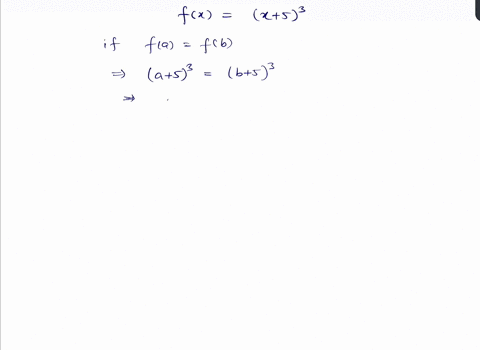 f(x) = (x+5)³
if f(a) = f(b)
⇒ (a+5)³ = (b+5)³
⇒